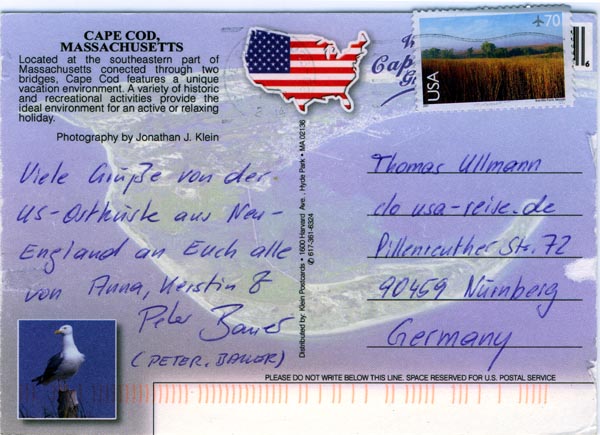 CAPE COD,
MASSACHUSETTS
Located at the southeastern part of
Massachusetts conected through two
bridges, Cape Cod features a unique
vacation environment. A variety of historic
and recreational activities provide the
ideal environment for an active or relaxing
holiday.
Photography by Jonathan J. Klein
70
USA
6
Viele Grüße von der
US-Ostküste aus Neu-
England an Euch alle
von Anna, Kerstin &
Peter Bauer
(PETER, BAUER)
Distributed by: Klein Postcards • 1600 Harvard Ave., Hyde Park • MA 02136
✆ 617-361-6324
Thomas Ullmann
c/o usa-reise.de
Pillenreuther Str. 72
90459 Nürnberg
Germany
PLEASE DO NOT WRITE BELOW THIS LINE. SPACE RESERVED FOR U.S. POSTAL SERVICE